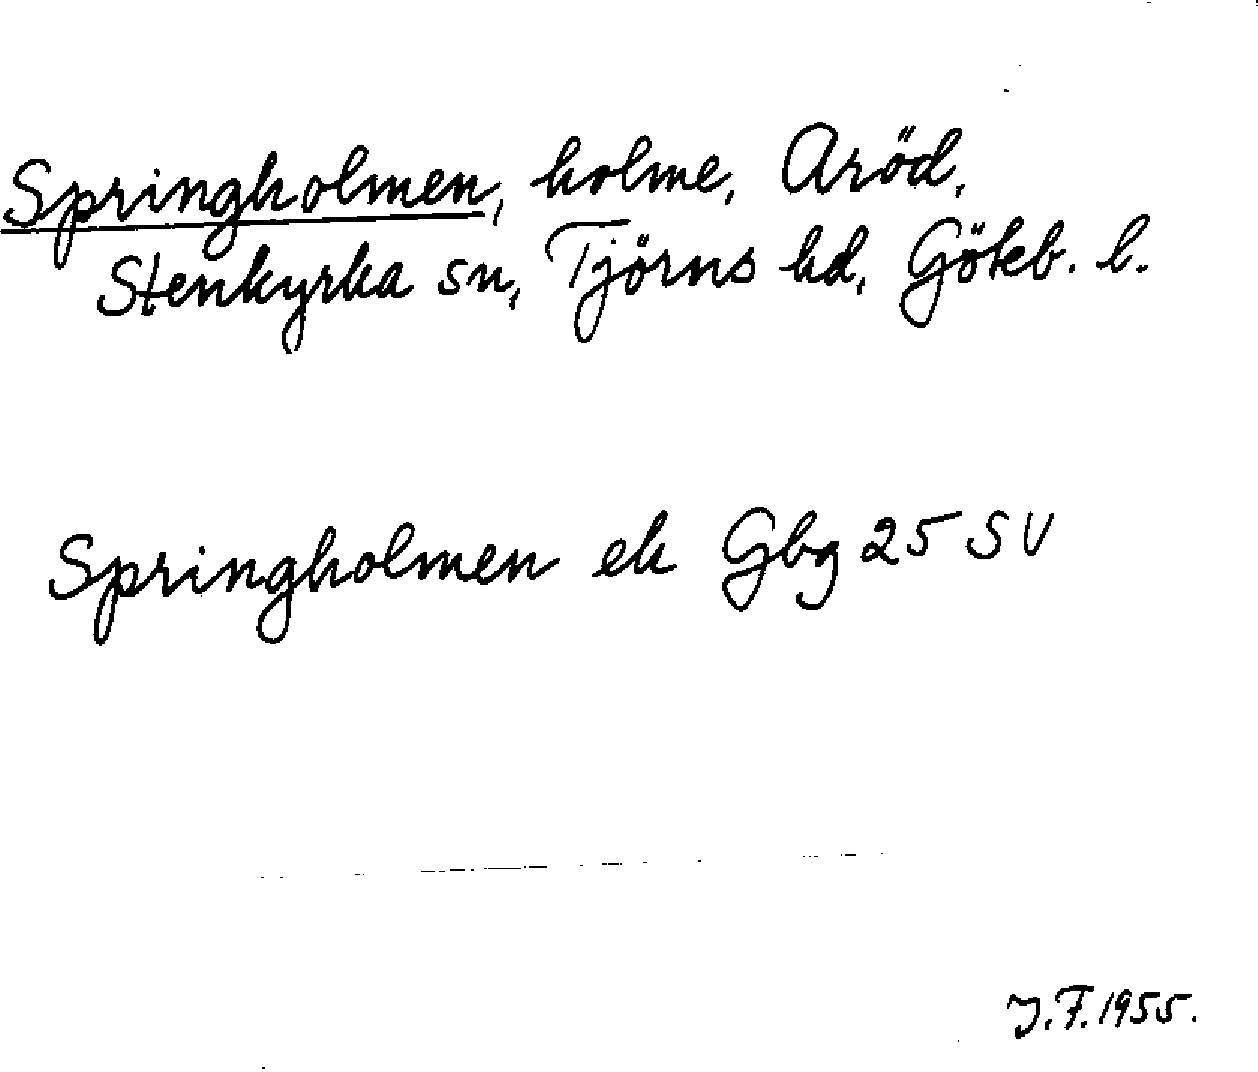 Springholmen, holme, Aröd,
Stenkyrka sn, Tjörns hd, Göteb. l.
Springholmen ek Gbg 25 SV
J.F. 1955.